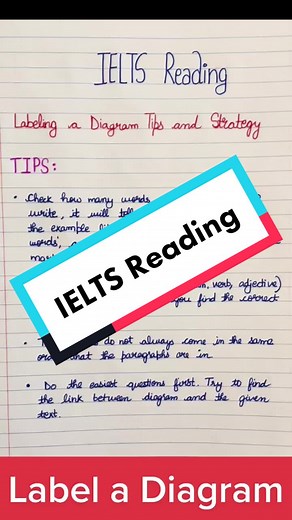 IELTS Reading
Labeling a Diagram Tips and Strategy
TIPS:
• Check how many words
write, it will tell
the example
words',
IELTS Reading
verb, adjective)
you find the correct
do not always come in the same
that the paragraphs are in
• Do the easiest questions first. Try to find
the link between diagram and the given
text.
Label a Diagram